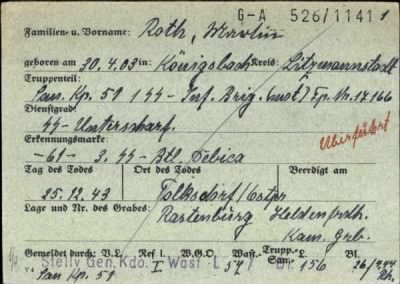 G-A 526/1141 1
Familien- u. Vorname: Roth, Martin
geboren am 30.4.03 in: Königsbach Kreis: Litzmannstadt
Truppenteil:
San. Kp. 51 / SS-Inf. Brig. (mot) Fp. Nr. 17166
Dienstgrad:
SS-Unterscharf.
Überführt
Erkennungsmarke:
-61- 3. SS-Btl. Debica
Tag des Todes Ort des Todes Beerdigt am
25.12.43 Tolksdorf/Ostpr
Lage und Nr. des Grabes: Rastenburg Heldenfrdh.
Kam. Grb.
Gemeldet durch: V.L. Ref. I W.G.O. Wast- Trupp. San.- Bl.
Stellv. Gen. Kdo. I Wast L 54 / Bl. 156
San Kp. 51